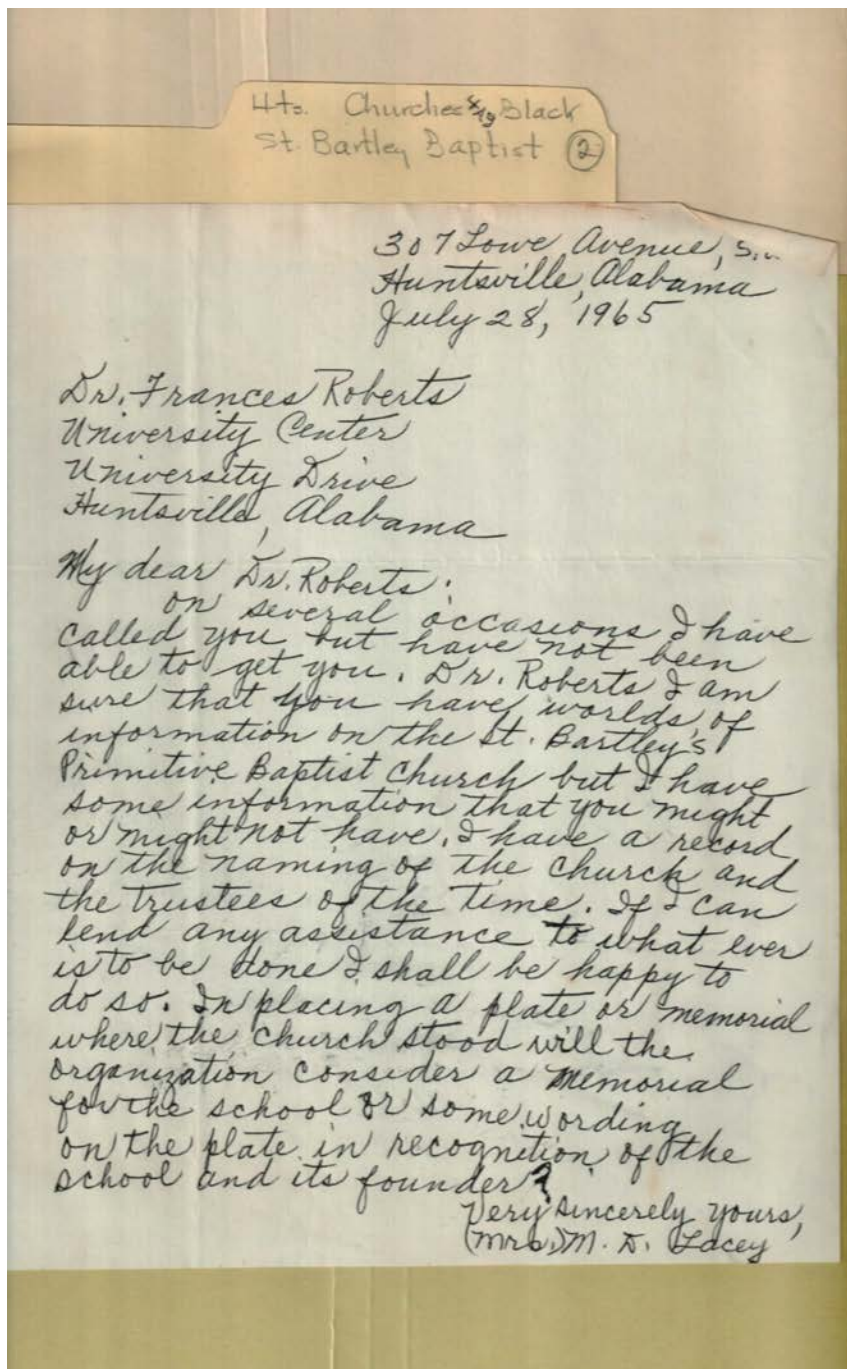 Churches Black
St. Bartley Baptist 2
307 Lowe Avenue, S.
Huntsville, Alabama
July 28, 1965
Dr. Frances Roberts
University Center
University Drive
Huntsville, Alabama
My dear Dr. Roberts:
on several occasions I have
called you but have not been
able to get you. Dr. Roberts I am
sure that you have worlds of
information on the St. Bartley's
Primitive Baptist Church but I have
some information that you might
or might not have. I have a record
on the naming of the church and
the trustees of the time. If I can
lend any assistance to what ever
is to be done I shall be happy to
do so. In placing a plate or memorial
where the church stood will the
organization consider a memorial
for the school or some wording
on the plate in recognition of the
school and its founder?
Very sincerely yours,
(Mrs.) M. D. Lacey